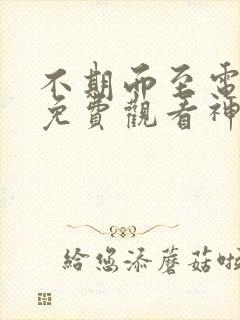 不期而至電
免費觀看神
給您添蘑菇啦